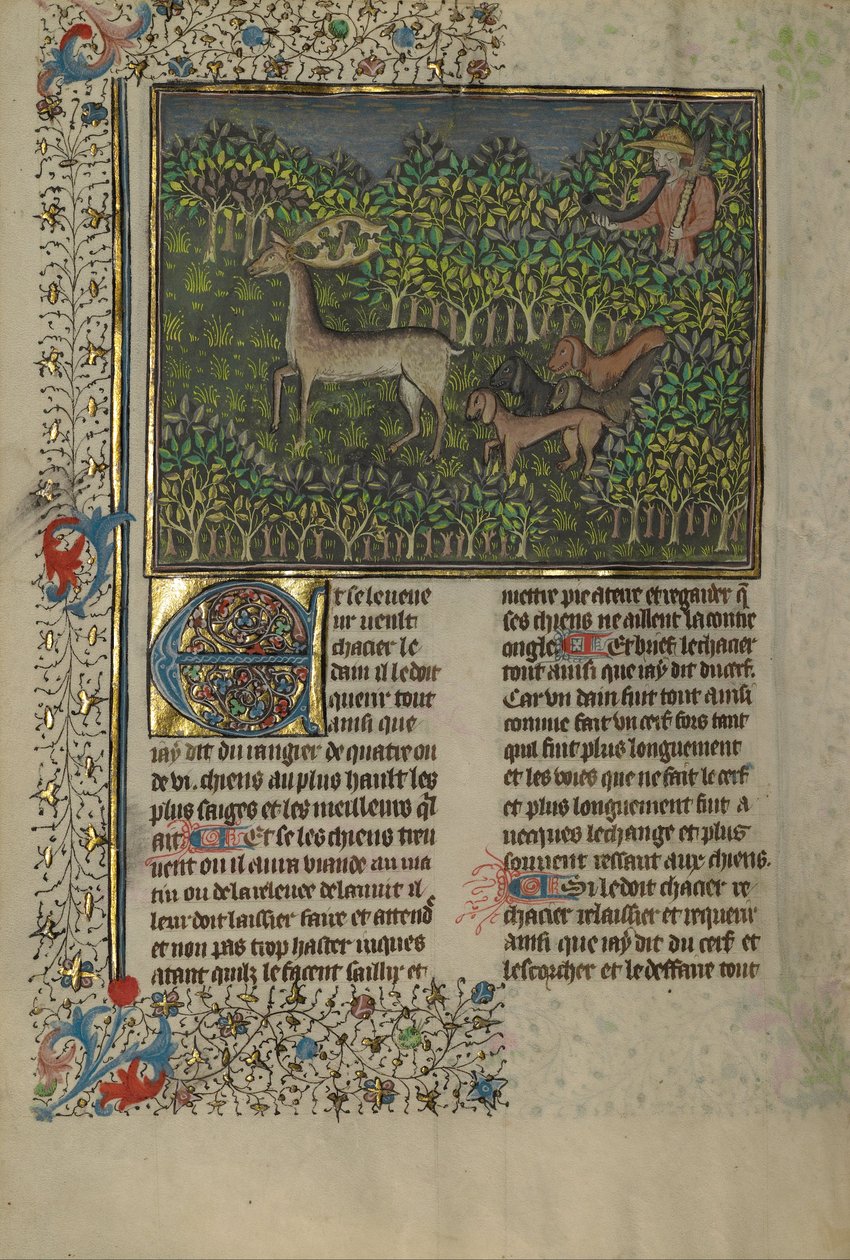 Et se le veneur
ur veult
chacier le
dain il le doit
querir tout
ainsi que
iay dit du rangier de quatre ou
de vi. chiens au plus hault les
plus saiges et les meilleurs ql
ait Et se les chiens treu
uent ou il aura viande au ma
tin ou de la releuee de la nuit il
leur doit laissier faire et attendr
et non pas trop haster iuques
atant quilz le facent saillir et
mettre pie a terre et regarder q̃
ses chiens ne aillent la contre
ongle Et brief le chacier
tout ainsi que iay dit du cerf.
Car vn dain fuit tout ainsi
comme fait vn cerf fors tant
quil fuit plus longuement
et les voies que ne fait le cerf
et plus longuement fuit a
uecques le change et plus
souuent ressaut aux chiens.
Si le doit chacier re
chacier relaissier et requerir
ainsi que iay dit du cerf et
lescorcher et le deffaire tout